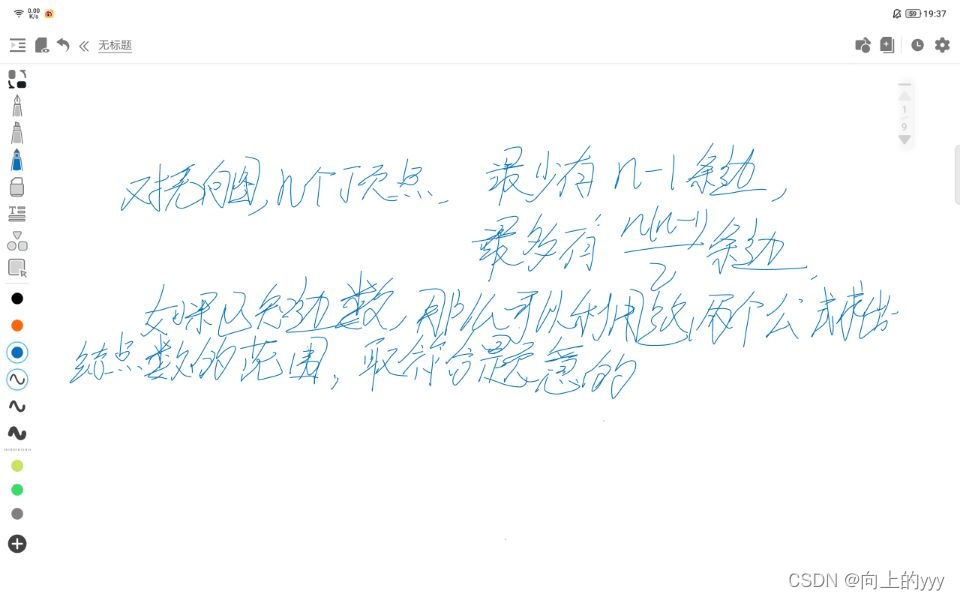 0.00 K/s
59 19:37
无标题
1
9
对无向图,n个顶点. 最少有 n-1 条边,
最多有 n(n-1)/2 条边.
如果已知边数,那么可以利用这两个公式求出
结点数的范围,取符合题意的
CSDN @向上的yyy